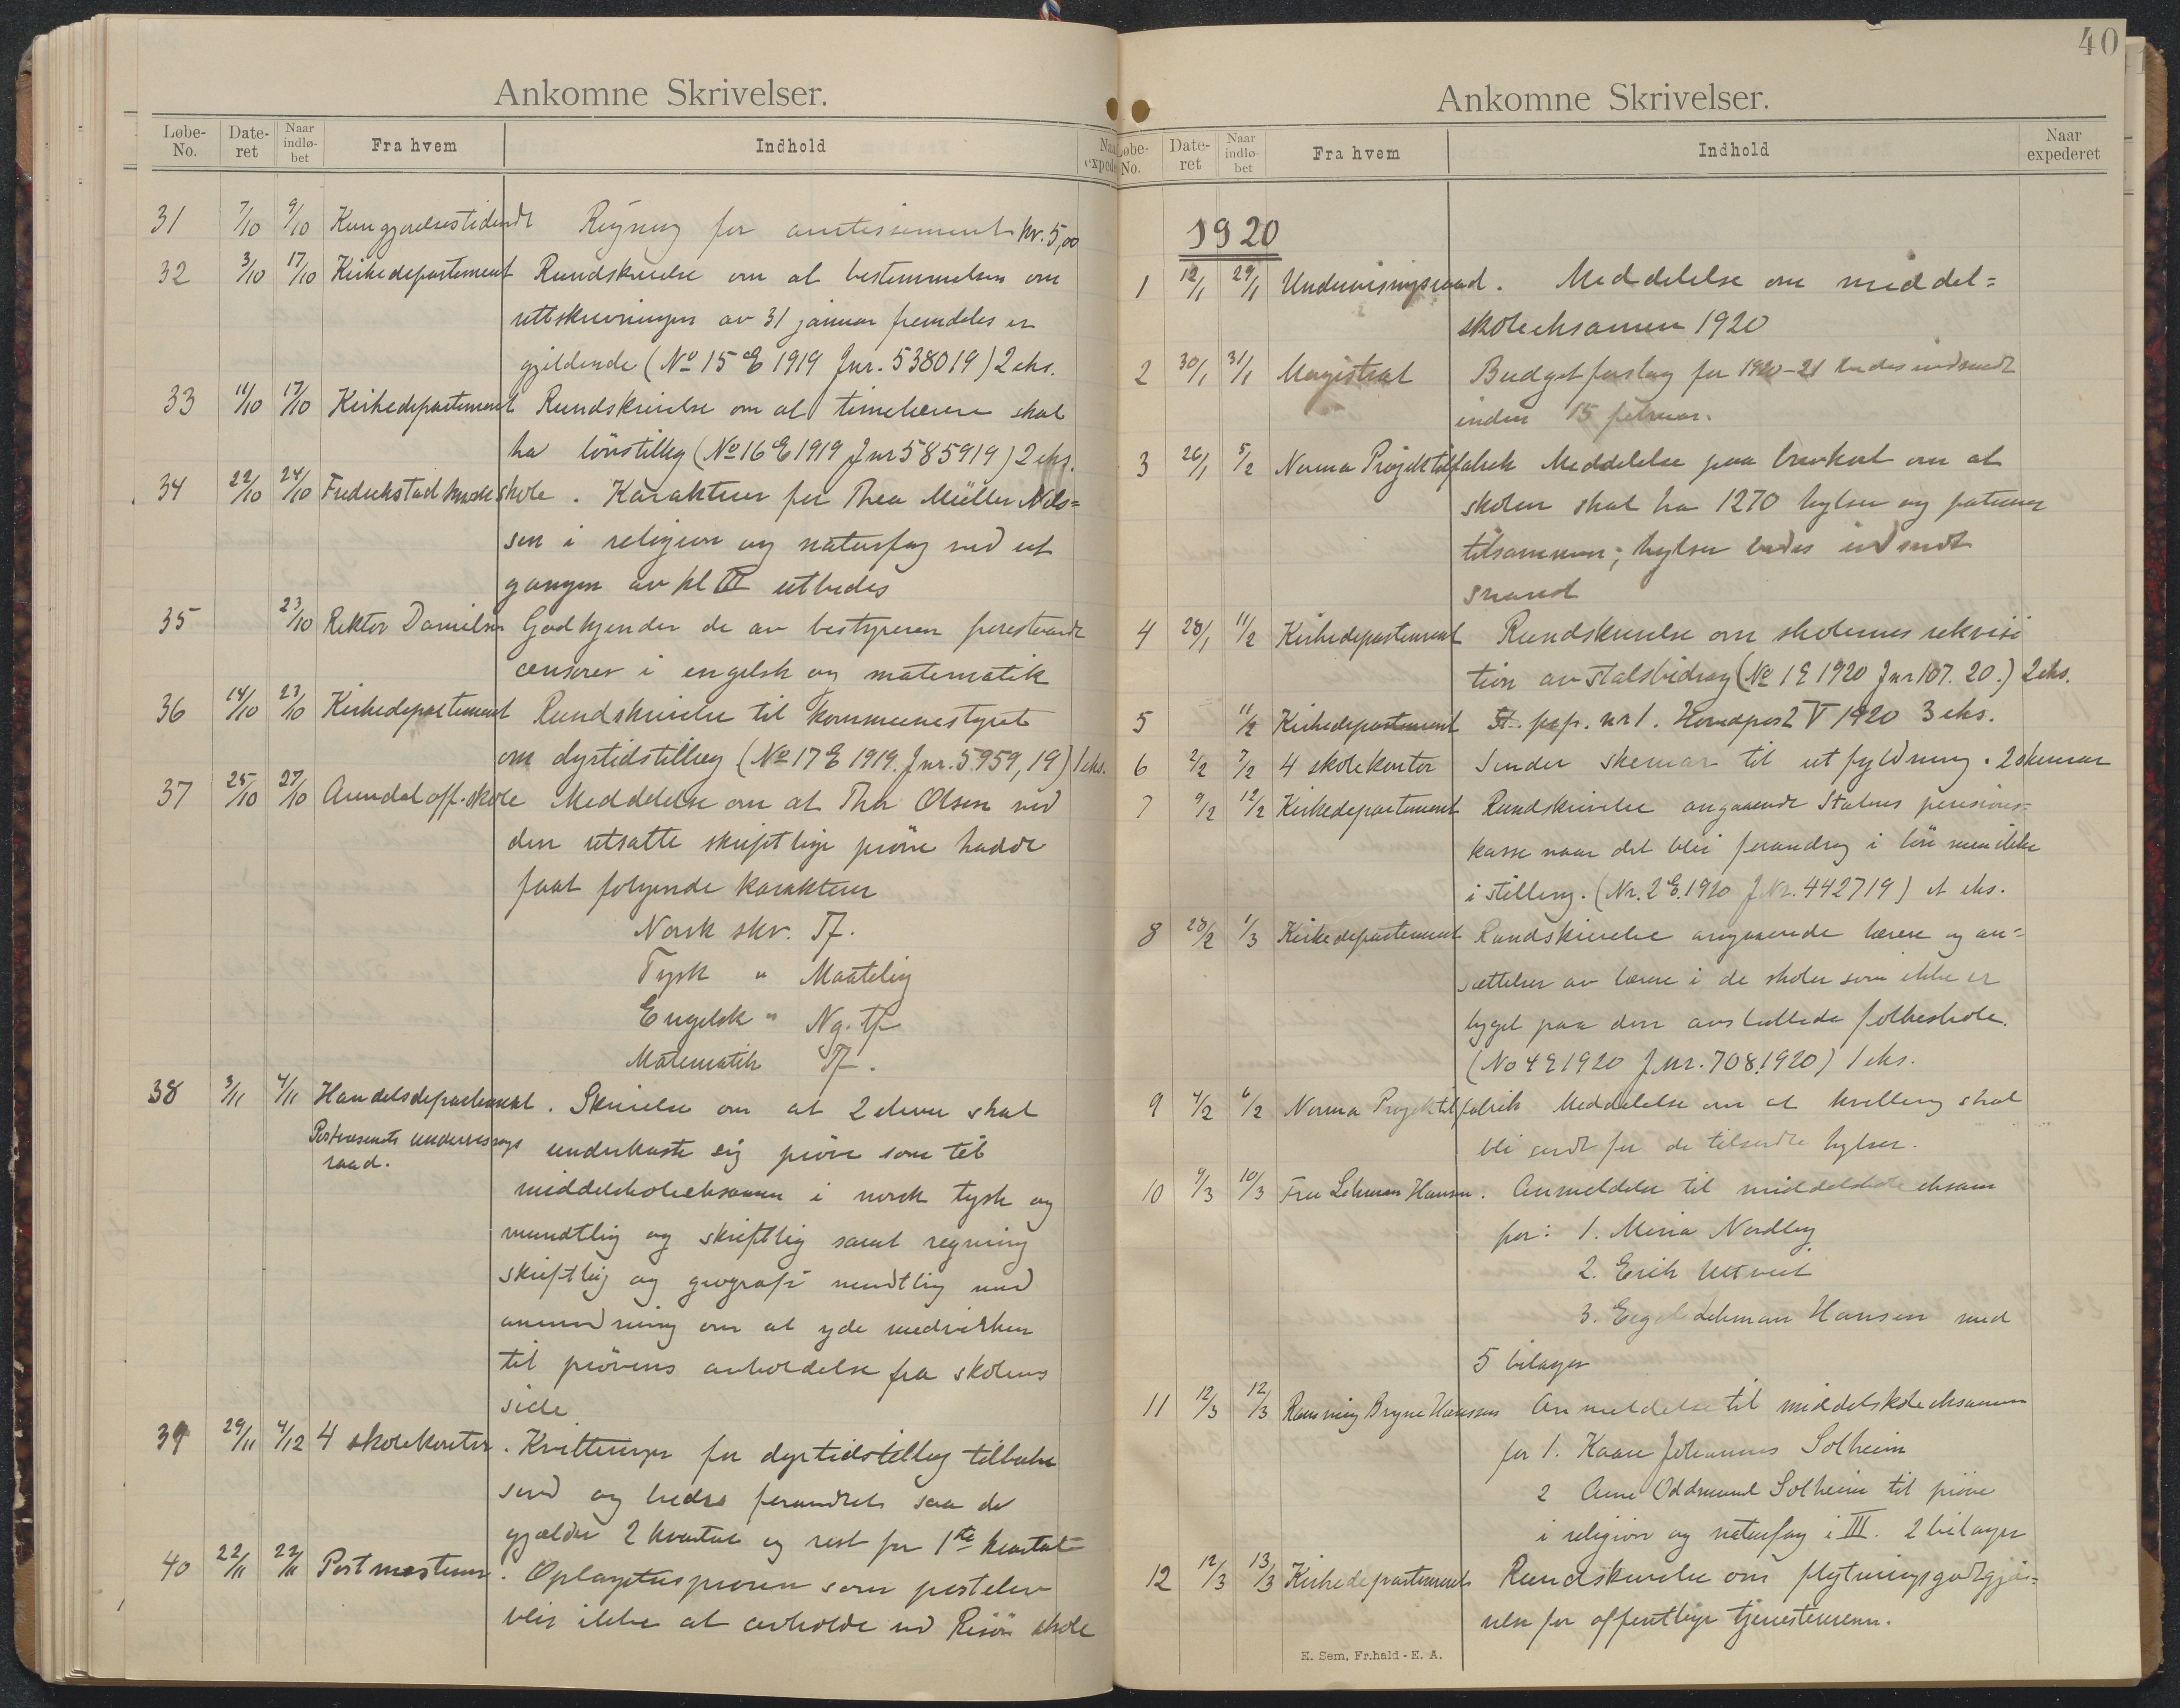 Ankomne Skrivelser.
Løbe-No. Dateret Naar indløbet Fra hvem Indhold
31 7/10 9/10 Kungjørelsestidende Regning for avertissement kr. 5,00
32 3/10 17/10 Kirkedepartement Rundskrivelse om at bestemmelsen om
rettskrivningen av 31 januar fremdeles er
gjeldende (No 15 E 1919 Jnr. 538019) 2 eks.
33 11/10 17/10 Kirkedepartement Rundskrivelse om at timelærere skal
ha lönstillæg (No 16 E 1919 Jnr 585919) 2 eks.
34 22/10 24/10 Fredrikstad skole. Karakterer for Thea Müller Nils=
sen i religion og naturfag ved ut
gangen av kl III utbedes
35 23/10 Rektor Danielsen Godkjender de av bestyreren foreslaaede
censorer i engelsk og matematik
36 14/10 23/10 Kirkedepartement Rundskrivelse til kommunestyret
om dyrtidstillæg (No 17 E 1919. Jnr. 5959,19) 1 eks.
37 25/10 27/10 Arendal off. skole Meddelelse om at Thor Olsen ved
den utsatte skriftlige prøve hadde
faat følgende karakterer
Norsk skr. Tf.
Tysk " Maatelig
Engelsk " Ng. tf.
Matematik Tf.
38 3/11 4/11 Handelsdepartement. Skrivelse om at 2 elever skal
Postvæsenets undervisnings underkaste sig prøve som til
raad.
middelskoleeksamen i norsk tysk og
mundtlig og skriftlig samt regning
skriftlig og geografi mundtlig med
anmodning om at yde medvirken
til prövens avholdelse fra skolens
side
39 29/11 4/12 4 skolekontor. Kvitteringer for dyrtidstillæg tilbake
send og bedes forandret saa de
gjælder 2 kvartal og rest for 1ste kvartal
40 22/11 22/11 Postmesteren. Optagelsesprøven som postelev
blir ikke at avholde ved Risör skole
40
Ankomne Skrivelser.
Løbe-No. Dateret Naar indløbet Fra hvem Indhold Naar expederet
1920
1 12/1 29/1 Undervisningsraad. Meddelelse om middel=
skoleeksamen 1920
2 30/1 31/1 Magistrat Budgetforslag for 1920-21 bedes indsendt
inden 15 februar.
3 26/1 5/2 Norma Projektilfabrik Meddelelse paa brevkort om at
skolen skal ha 1270 hylser og patroner
tilsammen; hylser bedes indsendt
snarest
4 28/1 11/2 Kirkedepartement Rundskrivelse om skolernes rekvisi
tion av statsbidrag (No 1 E 1920 Jnr 107. 20.) 2 eks.
5 11/2 Kirkedepartement St. prp. nr 1. Hovedpost V 1920 3 eks.
6 2/2 7/2 4 skolekontor Sender skemaer til utfyldning. 2 skemaer
7 9/2 12/2 Kirkedepartement Rundskrivelse angaaende Statens pensions=
kasse naar det blir forandring i lön men ikke
i stilling. (Nr. 2 E. 1920 J Nr. 442719) et eks.
8 28/2 1/3 Kirkedepartement Rundskrivelse angaaende lærere og an=
sættelser av lærere i de skoler som ikke er
bygget paa den avsluttede folkeskole.
(No 4 E 1920 Jnr. 708.1920) 1 eks.
9 4/2 6/2 Norma Projektilfabrik Meddelelse om at kvittering skal
bli sendt for de tilsendte hylser.
10 9/3 10/3 Fru Lehman Hansen. Anmeldelse til middelskoleeksam
for: 1. Miria Nordby
2. Erik
3. Lehman Hansen med
5 bilager
11 12/3 12/3 Bryne Hanssen Anmeldelse til middelskoleeksamen
for 1. Kaare Johannes Solheim
2 Arne Oddmund Solheim til prøve
i religion og naturfag i III. 2 bilager
12 12/3 13/3 Kirkedepartement Rundskrivelse om flytningsgodtgjö=
relse for offentlige tjenestemenn.
E. Sem, Fr.hald - E. A.